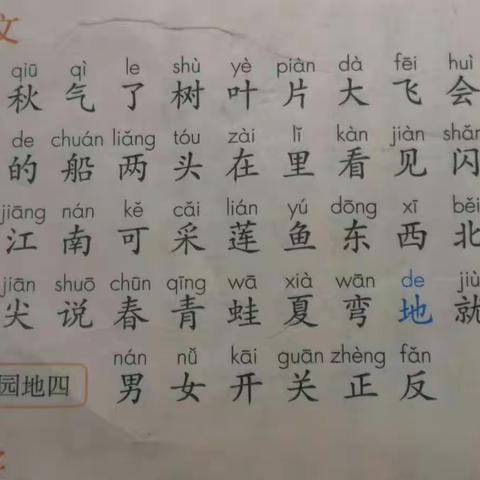 文
qiū qì le shù yè piàn dà fēi huì
秋 气 了 树 叶 片 大 飞 会
de chuán liǎng tóu zài lǐ kàn jiàn shǎn
的 船 两 头 在 里 看 见 闪
jiāng nán kě cǎi lián yú dōng xī běi
江 南 可 采 莲 鱼 东 西 北
jiān shuō chūn qīng wā xià wān de jiù
尖 说 春 青 蛙 夏 弯 地 就
nán nǚ kāi guān zhèng fǎn
园地四 男 女 开 关 正 反